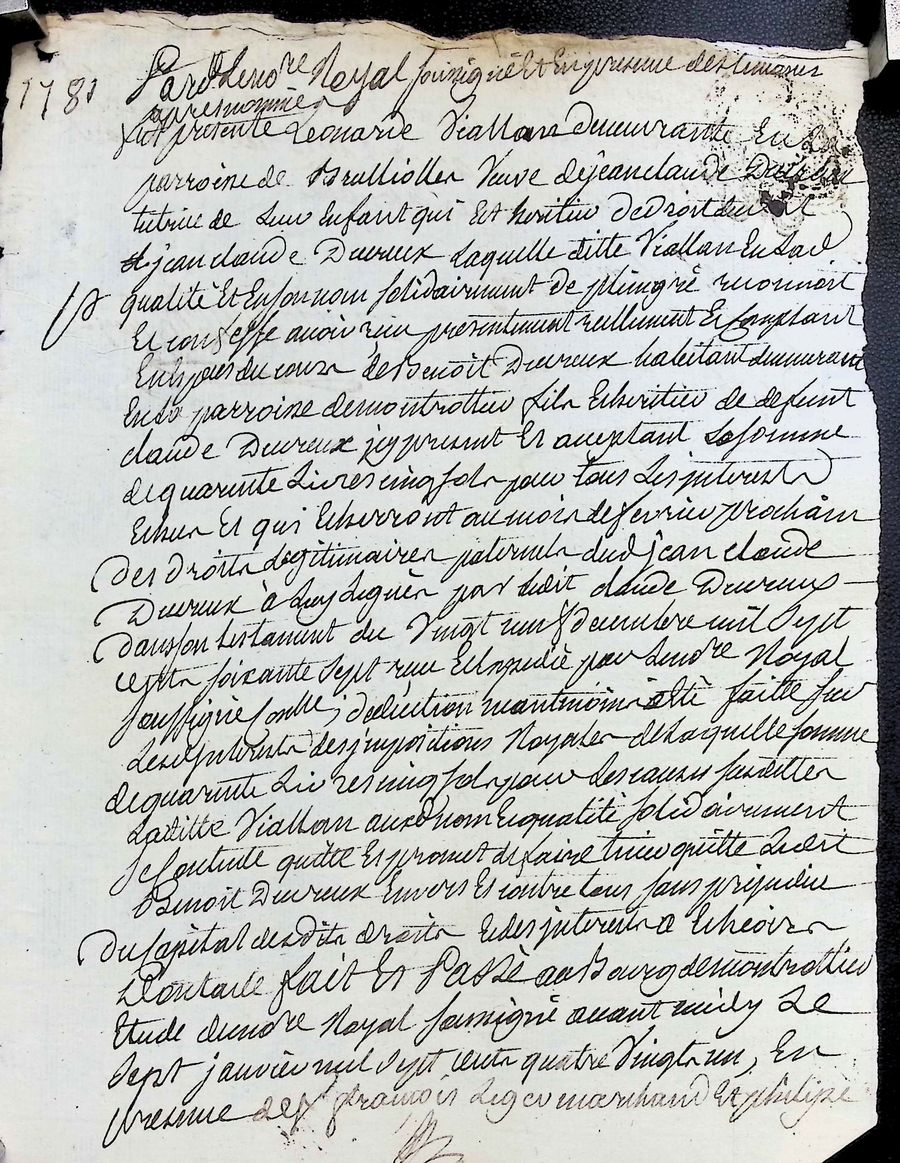 1781
Pard. Le no.re Royal soussigné Et En presence des temoins
apres nommés
fut presente Leonarde Viallan demeurante En la
parroisse de Brulliolles Veuve de jean claude Duivreux
tutrice de Leur Enfant qui Est heritier de droit dud.
d jean claude Duvreux Laquelle ditte Viallan En Lad.
qualité Et En son nom solidairement de plein gré reconnoit
Et confesse avoir reçu presentement réellement Et Comptant
En Espèces du cours de Benoit Duvreux habitant demeurant
En La parroisse de montrottier fils Et heritier de defunt
claude Duvreux jcy present Et acceptant La somme
de quarante Livres cinq sols pour tous Les jnterests
Echus Et qui Echerront au mois de fevrier prochain
des droits Legitimaires paternels dud. jean claude
Duvreux à Luy Legués par Ledit claude Duvreux
dans son testament du Vingt neuf decembre mil Sept
cents soixante Sept reçu Et Expedié par Le no.re Royal
soussigné Conlle; deduction neantmoins a Eté faitte sur
Lesd. jnterests des jmpositions Royales de Laquelle somme
de quarante Livres cinq sols pour Les causes susdittes
Laditte Viallan auxd. nom Et qualité solidairement
Se Contente quitte Et promet de faire tenir quitte Ledit
Benoit Duvreux Envers Et contre tous sans prejudice
du Capital desdits droits Et des jnterests a Echeoir
Dont acte fait Et Passé au Bourg de montrottier
Etude du no.re Royal soussigné avant midy Le
Sept janvier mil Sept cents quatre Vingt un, En
presence de s.r françois Leger marchand Et philipe